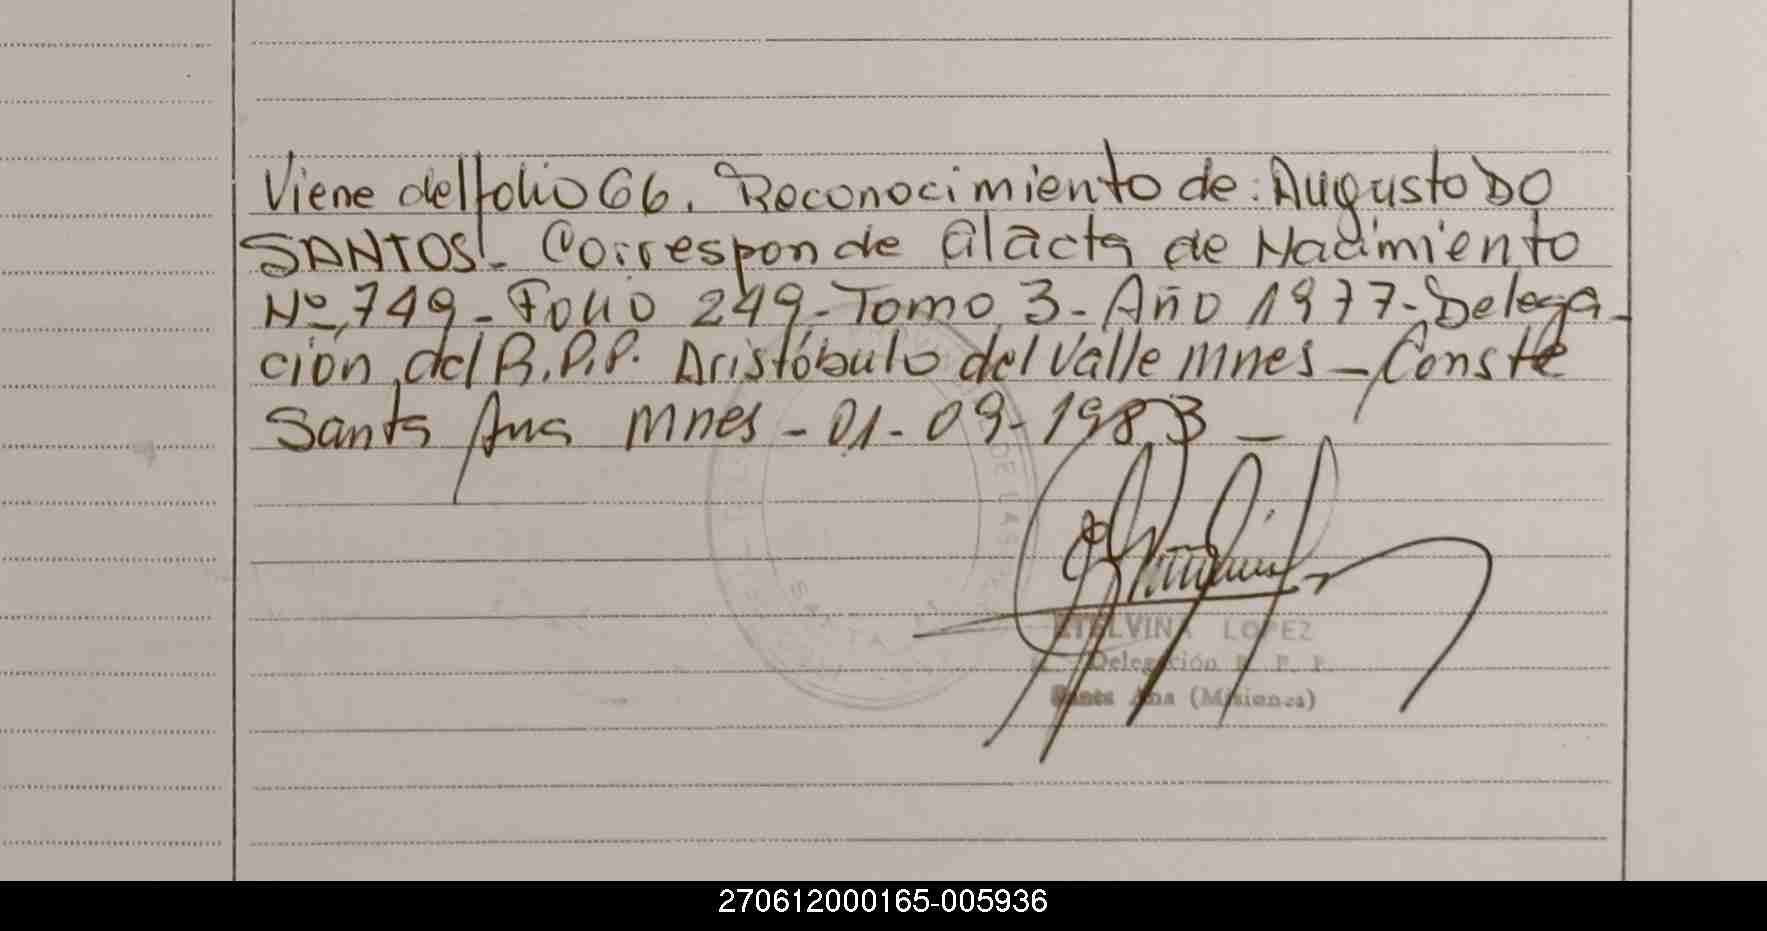 Viene del folio 66. Reconocimiento de: Augusto DO
SANTOS - Corresponde al acta de Nacimiento
Nº 749 - Folio 249 - Tomo 3 - Año 1977 - Delega-
ción del R.P.P. Aristóbulo del Valle Mnes - Conste
Santa Ana Mnes - 01-09-1983 -
ETELVINA LOPEZ
Delegación R. P. P.
Santa Ana (Misiones)
270612000165-005936